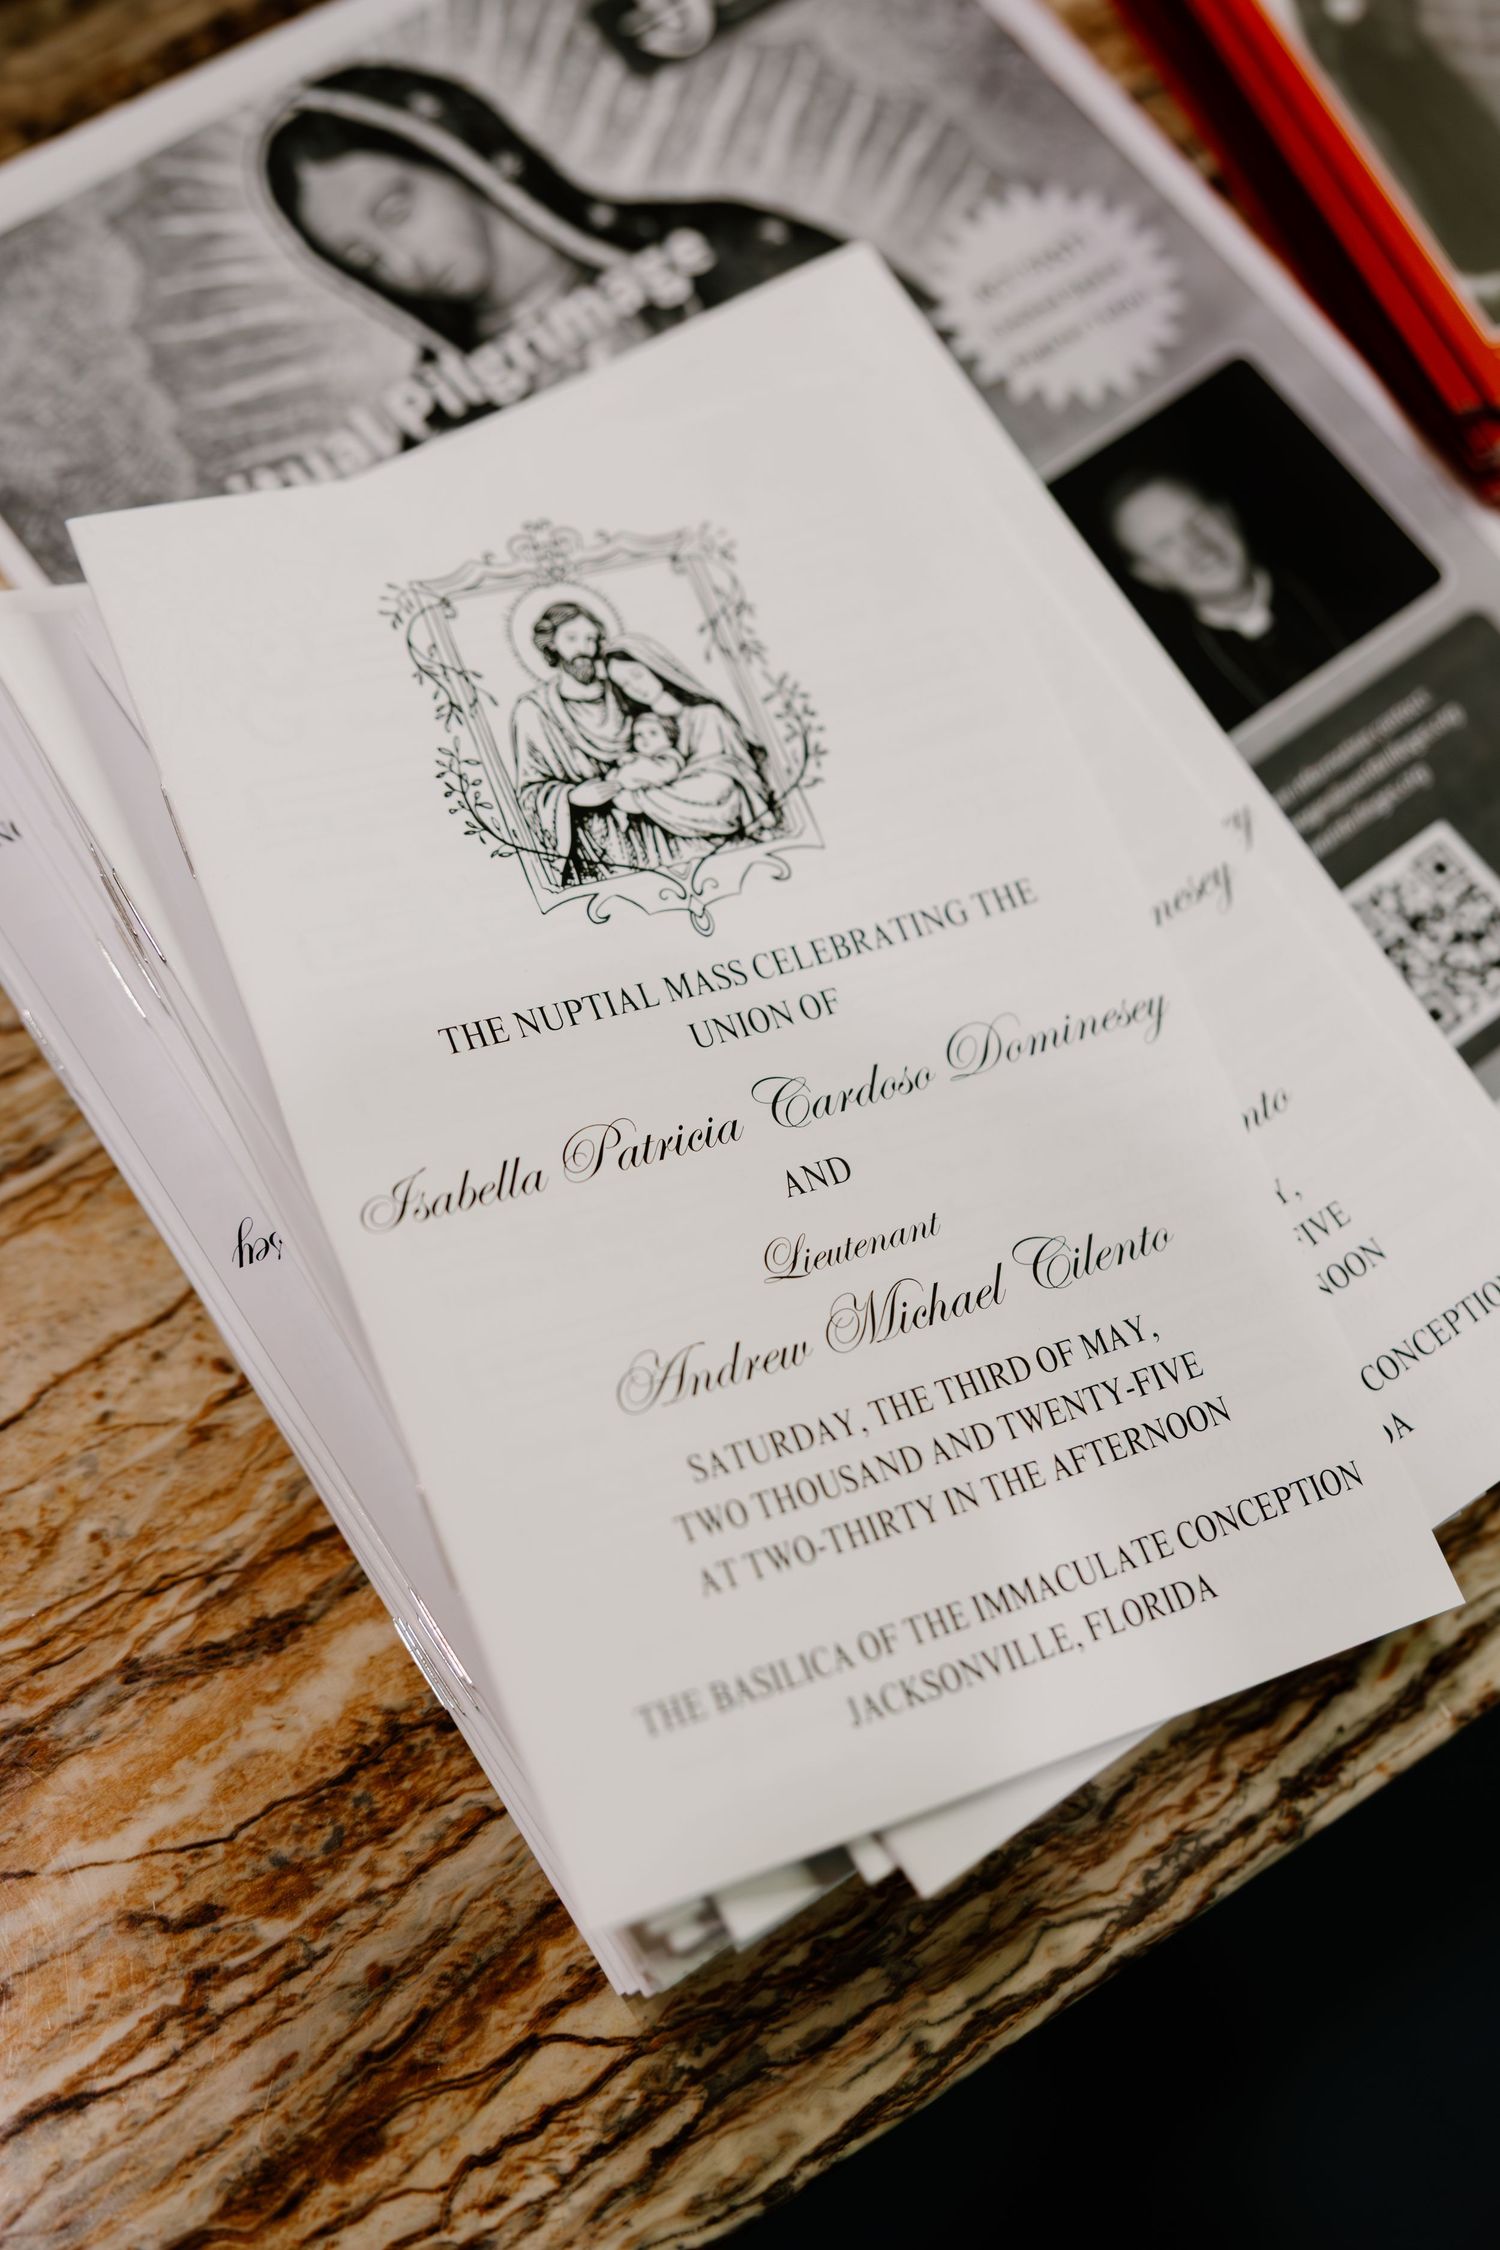 Pilgrimage
THE NUPTIAL MASS CELEBRATING THE
UNION OF
Isabella Patricia Cardoso Dominesey
AND
Lieutenant
Andrew Michael Cilento
SATURDAY, THE THIRD OF MAY,
TWO THOUSAND AND TWENTY-FIVE
AT TWO-THIRTY IN THE AFTERNOON
THE BASILICA OF THE IMMACULATE CONCEPTION
JACKSONVILLE, FLORIDA
nesey
nto
Y,
FIVE
NOON
CONCEPTION
DA
sey